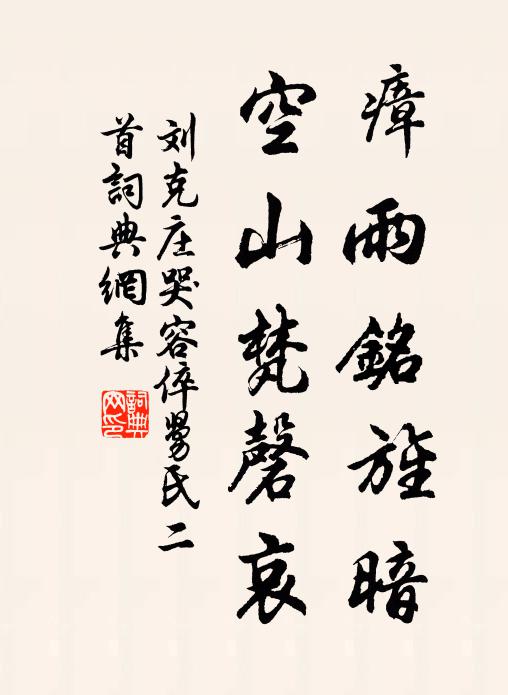 瘴雨銘旌暗
空山梵磬哀
刘克庄哭容倅舅氏二
首詞典網集
詞典
网印